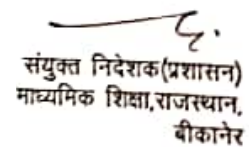 संयुक्त निदेशक(प्रशासन)
माध्यमिक शिक्षा,राजस्थान,
बीकानेर